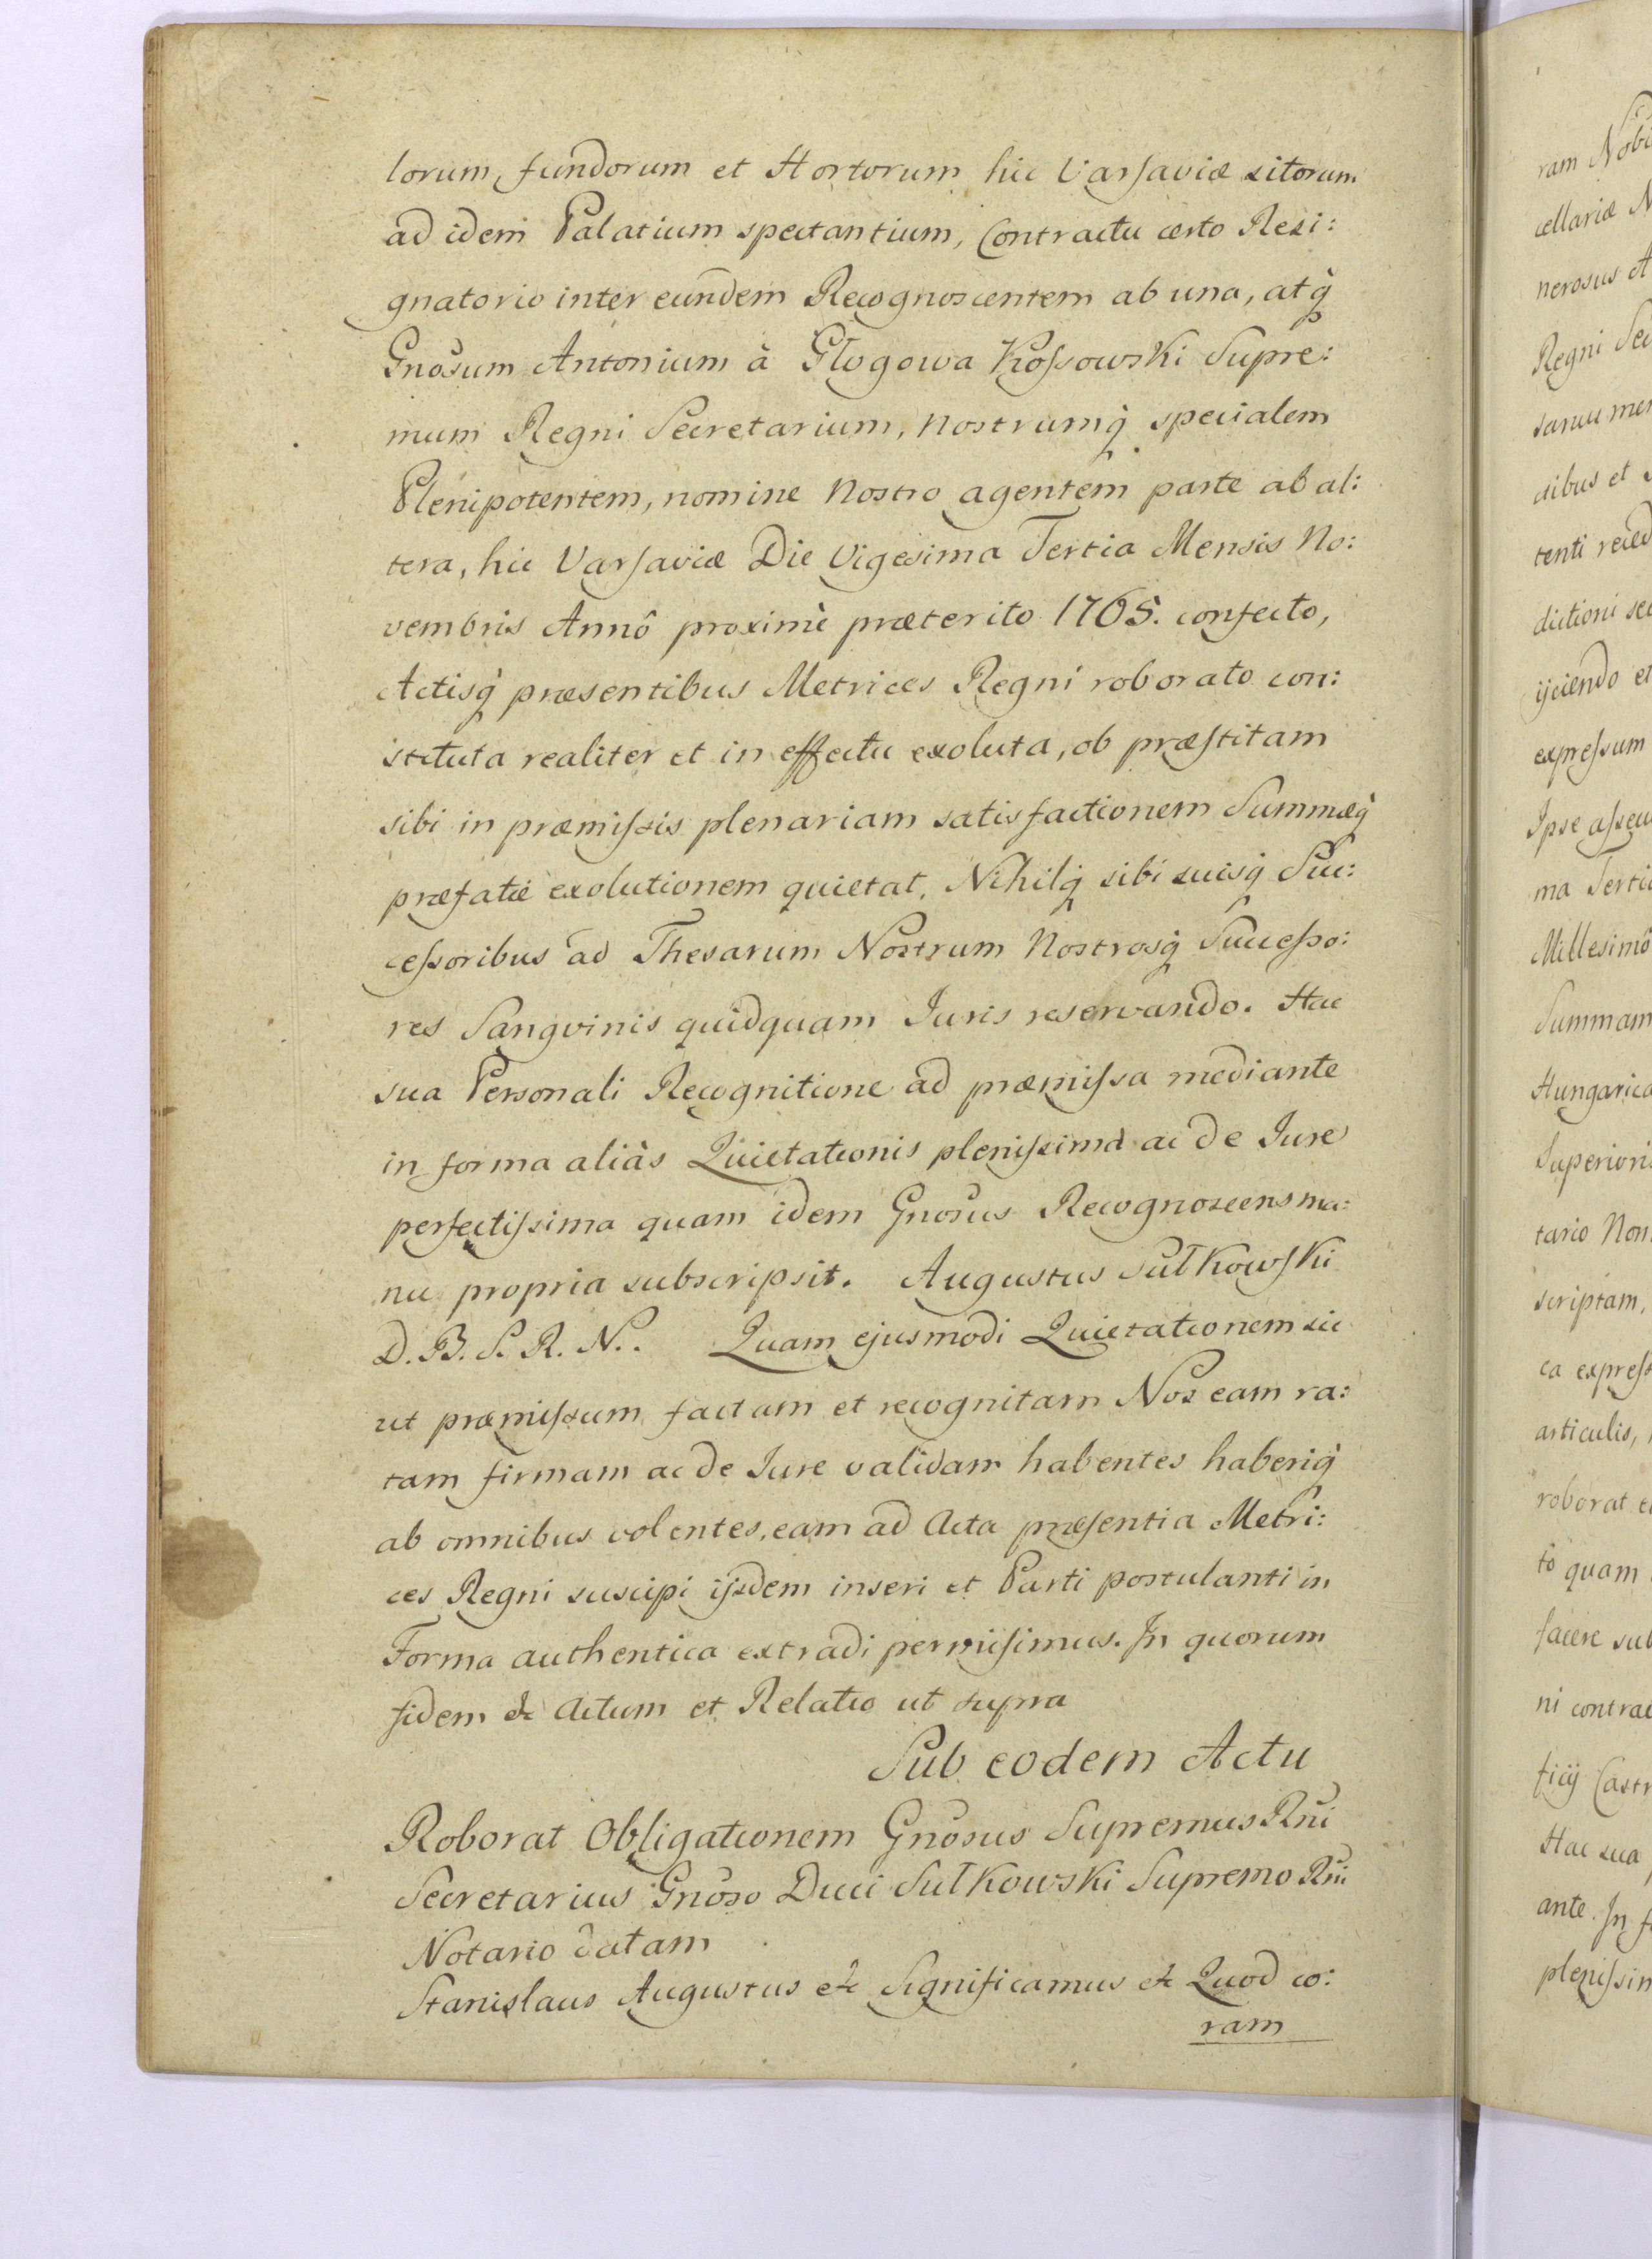 lorum, fundorum et Hortorum hic Varsaviæ sitorum
ad idem Palatium spectantium, Contractu certo Resi:
gnatorio inter eundem Recognoscentem ab una, atq̀
Gnosum Antonium à Głogowa Kossowski Supre:
mum Regni Secretarium, Nostrumq̀ specialem
Plenipotentem, nomine Nostro agentem parte ab al:
tera, hic Varsaviæ Die Vigesima Tertia Mensis No:
vembris Annô proximè præterito 1765. confecto,
Actisq̀ præsentibus Metrices Regni roborato con:
stituta realiter et in effectu exoluta, ob præstitam
sibi in præmissis plenariam satisfactionem Summæq̀
præfatæ exolutionem quietat, Nihilq̀ sibi suisq̀ Suc:
cessoribus ad Thesarum Nostrum Nostrosq̀ Successo:
res Sangvinis quidquam Juris reservando. Hac
sua Personali Recognitione ad præmissa mediante
in forma aliàs Quietationis plenissima ac de Jure
perfectissima quam idem Gnosus Recognoscens ma:
nu propria subscripsit. Augustus Sułkowski
D. B. S. R. N.. Quam ejusmodi Quietationem sic
ut præmissum factam et recognitam Nos eam ra:
tam firmam ac de Jure validam habentes haberiq̀
ab omnibus volentes, eam ad Acta præsentia Metri:
ces Regni suscipi ijsdem inseri et Parti postulanti in
Forma authentica extradi permisimus. In quorum
fidem &c Actum et Relatio ut supra
Sub eodem Actu
Roborat Obligationem Gnosus Supremus Rni
Secretarius Gnoso Duci Sułkowski Supremo Rni
Notario datam
Stanislaus Augustus &c Significamus &c Quod co:
ram
ram
cellariæ
nerosus
Regni
dibus et
tenti
ijciendo et
expressum
Ipse
ma
Millesimô
Summam
Hungarica
tario
scriptam,
articulis,
roborat
tô quam
facere
Hac sua
ante. In